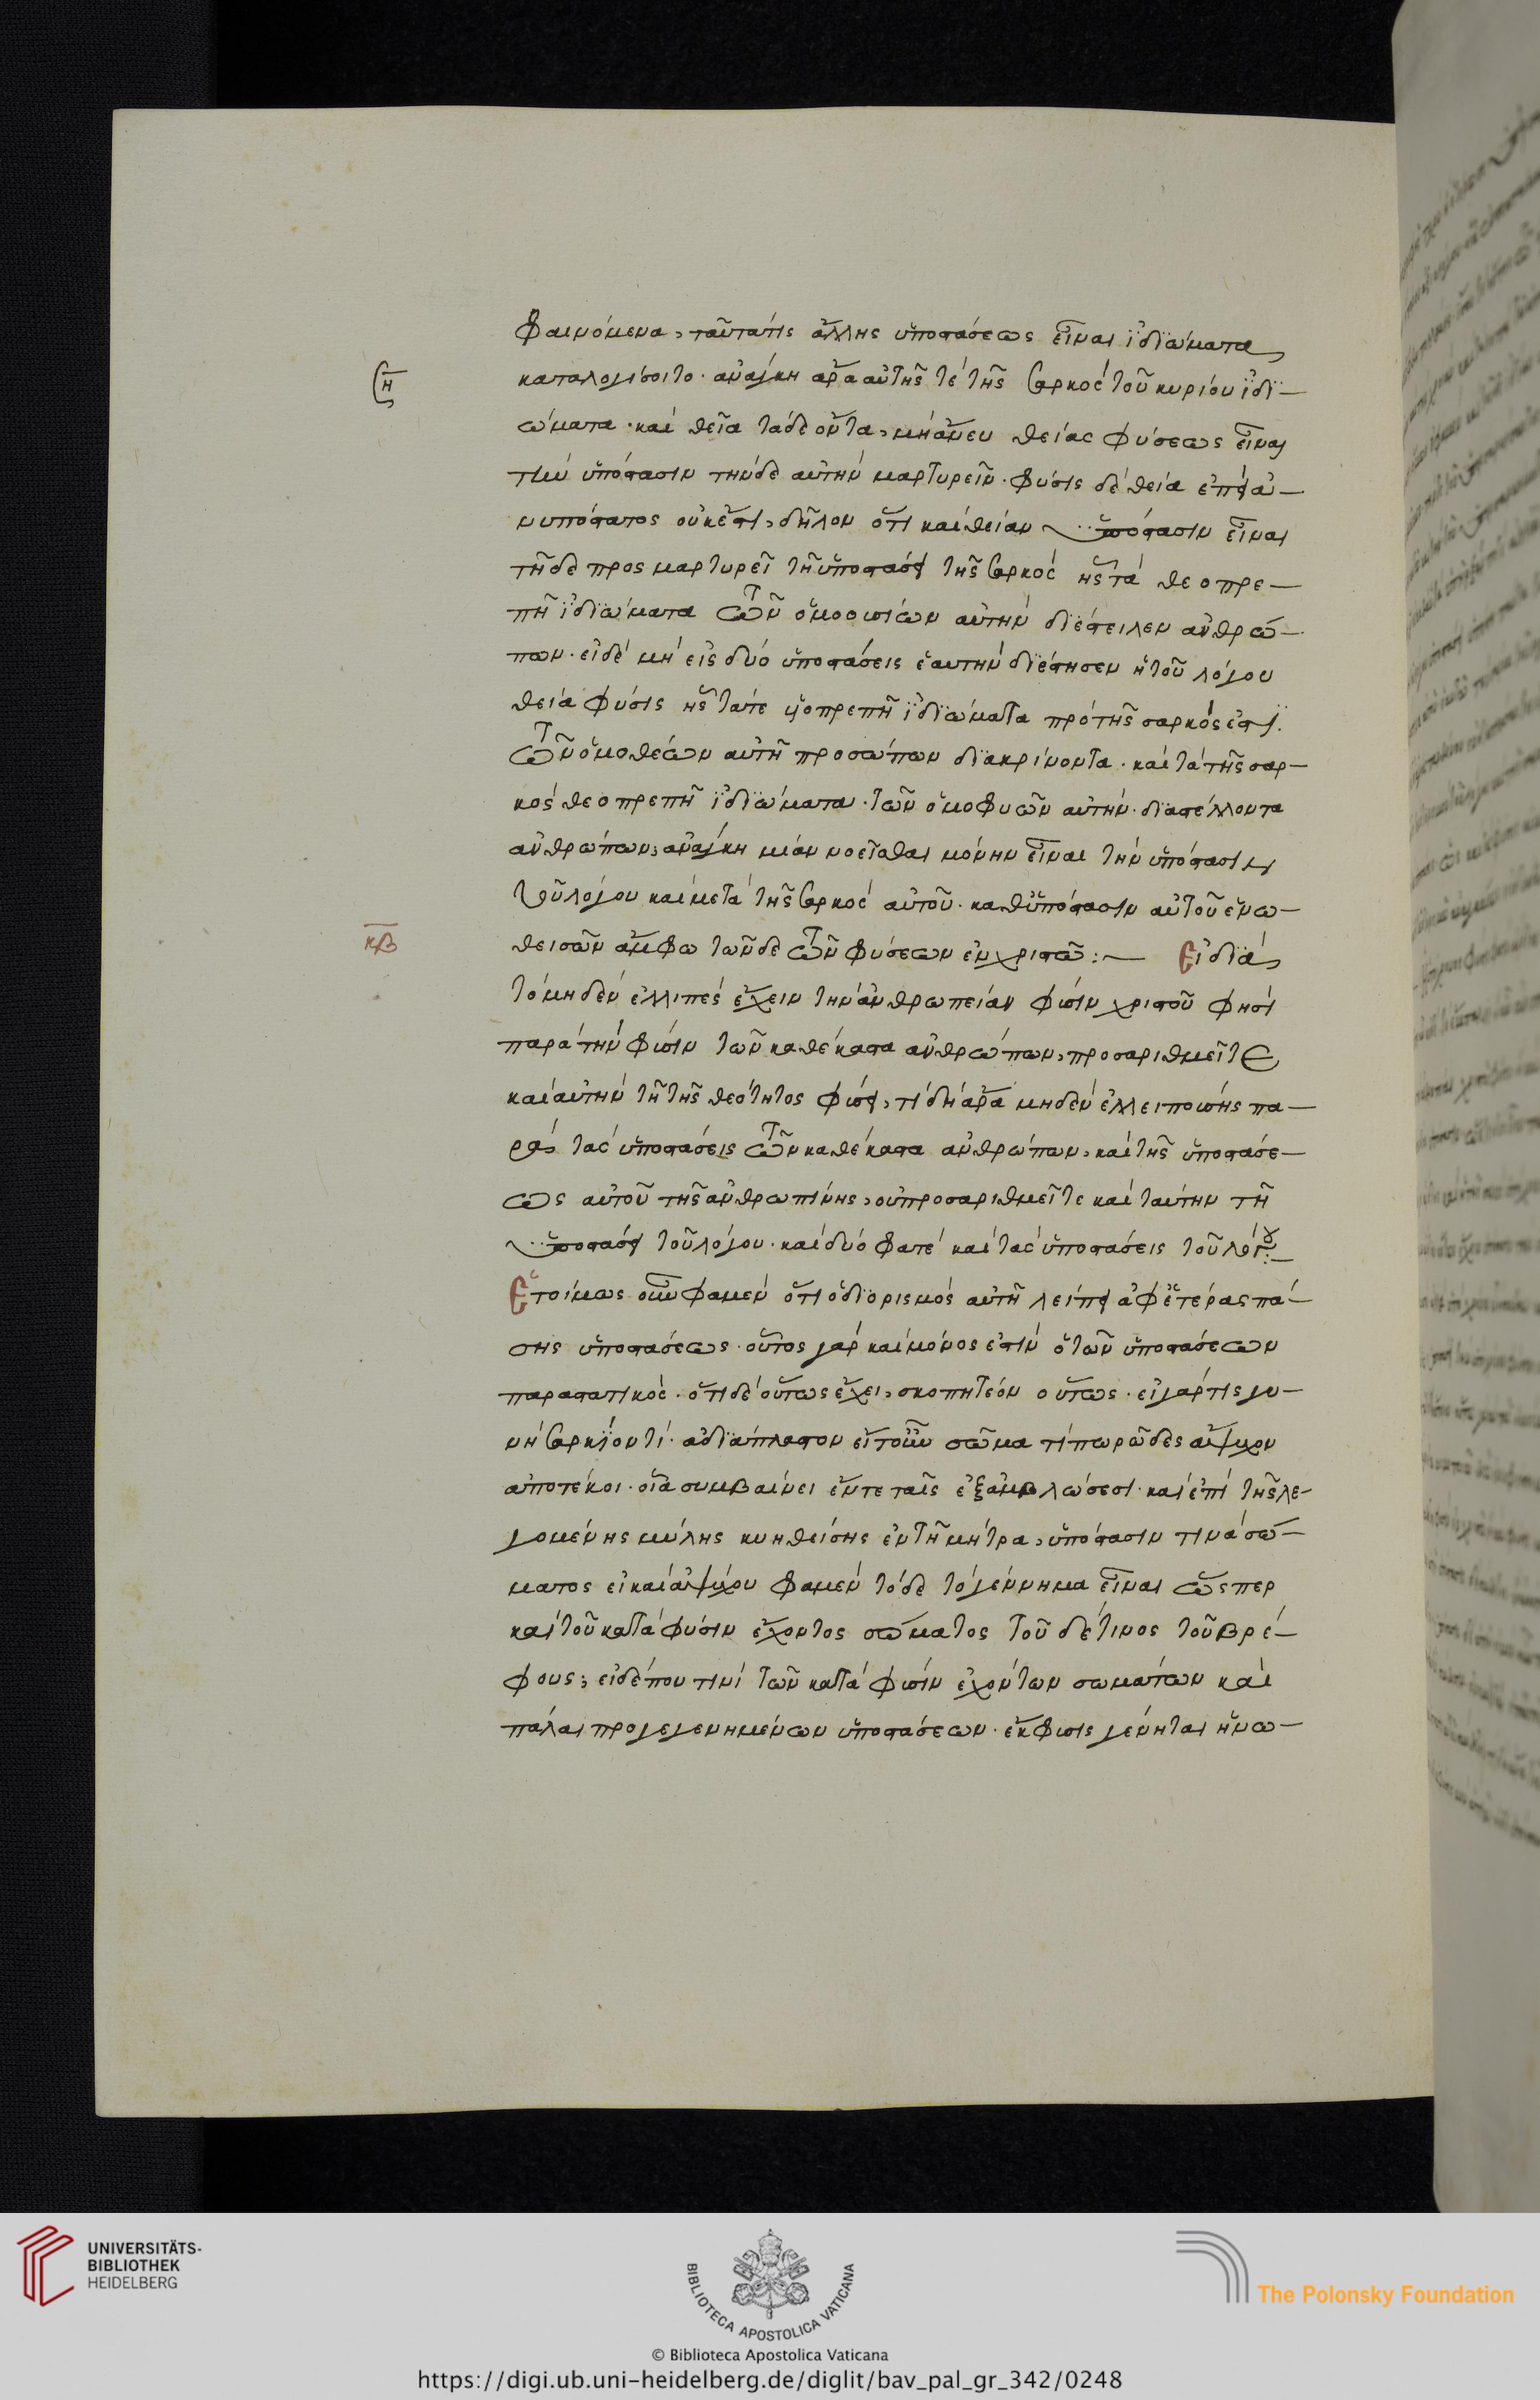 φαινόμενα, ταῦτα τίς ἄλλης ὑποστάσεως εἶναι ἰδϊώματα
καταλογίσοιτο· ἀνάγκη ἄρα αὐτῆς τὲ τῆς σαρκὸς τοῦ κυρίου ἰδϊ-
ϛη
ώματα· καὶ θεῖα τάδε ὄντα, μὴ ἄνευ θείας φύσεως εἶναι
τὴν ὑπόστασιν τήνδε αὐτὴν μαρτυρεῖν· φύσις δὲ θεία ἐπεὶ ἀ-
νυπόστατος οὐκ ἔστι, δῆλον ὅτι καὶ θείαν ὑπόστασιν εἶναι
τῇδε προσμαρτυρεῖ τῇ ὑποστάσει τῆς σαρκὸς ἧς τὰ θεοπρε-
πῆ ἰδϊώματα τῶν ὁμοουσίων αὐτὴν διέστειλεν ἀνθρώ-
πων· εἰ δὲ μὴ εἰς δύο ὑποστάσεις ἑαυτὴν διέστησεν ἡ τοῦ λόγου
θεία φύσις ἧς τά τε θεοπρεπῆ ἰδϊώματα πρὸ τῆς σαρκός ἐστι
τῶν ὁμοθέων αὐτῆ προσώπων διακρίνοντα· καὶ τὰ τῆς σαρ-
κὸς θεοπρεπῆ ἰδϊώματα· τῶν ὁμοφυῶν αὐτὴν διαστέλλοντα
ἀνθρώπων, ἀνάγκη μίαν νοεῖσθαι μόνην εἶναι τὴν ὑπόστασιν
τοῦ λόγου καὶ μετὰ τῆς σαρκὸς αὐτοῦ· καθ' ὑπόστασιν αὐτοῦ ἑνω-
κβ
θεισῶν ἄμφω τῶνδε τῶν φύσεων ἐν χριστῷ:— Εἰ διὰ
τὸ μηδὲν ἐλλιπὲς ἔχειν τὴν ἀνθρωπείαν φύσιν χριστοῦ φησὶ
παρὰ τὴν φύσιν τῶν καθέκαστα ἀνθρώπων, προσαριθμεῖτε
καὶ αὐτὴν τῇ τῆς θεότητος φύσει, τί δὴ ἄρα μηδὲν ἐλλειποίσης πα-
ρὰ τὰς ὑποστάσεις τῶν καθέκαστα ἀνθρώπων, καὶ τῆς ὑποστάσε-
ως αὐτοῦ τῆς ἀνθρωπίνης, οὐ προσαριθμεῖτε καὶ ταύτην τῇ
ὑποστάσει τοῦ λόγου· καὶ δύο φατὲ καὶ τὰς ὑποστάσεις τοῦ λόγου:—
Ἑτοίμως οὖν φαμὲν ὅτι ὁ διορισμὸς αὐτῆ λείπει ἀφ' ἑτέρας πά-
σης ὑποστάσεως· οὗτος γὰρ καὶ μόνος ἐστὶν ὁ τῶν ὑποστάσεων
παραστατικὸς· ὅτι δὲ οὕτως ἔχει, σκοπητέον οὕτως· εἰ γάρ τις γυ-
νὴ σαρκίον τὶ ἀδιάπλαστον εἴτουν σῶμα τὶ πωρῶδες ἄψυχον
ἀποτέκοι· οἷα συμβαίνει ἔν τε ταῖς ἐξαμβλώσεσι· καὶ ἐπὶ τῆς λε-
γομένης μύλης κυηθείσης ἐν τῇ μήτρα, ὑπόστασιν τινὰ σώ-
ματος εἰ καὶ ἀψύχου φαμὲν τόδε τὸ γέννημα εἶναι ὥσπερ
καὶ τοῦ κατὰ φύσιν ἔχοντος σώματος τοῦ δέ τινος τοῦ βρέ-
φους; εἰ δέ που τινὶ τῶν κατὰ φύσιν ἐχόντων σωμάτων καὶ
πάλαι προγεγενημένων ὑποστάσεων· ἔκφυσις γένηται ἡνω-
UNIVERSITÄTS-
BIBLIOTHEK
HEIDELBERG
BIBLIOTECA APOSTOLICA VATICANA
The Polonsky Foundation
© Biblioteca Apostolica Vaticana
https://digi.ub.uni-heidelberg.de/diglit/bav_pal_gr_342/0248